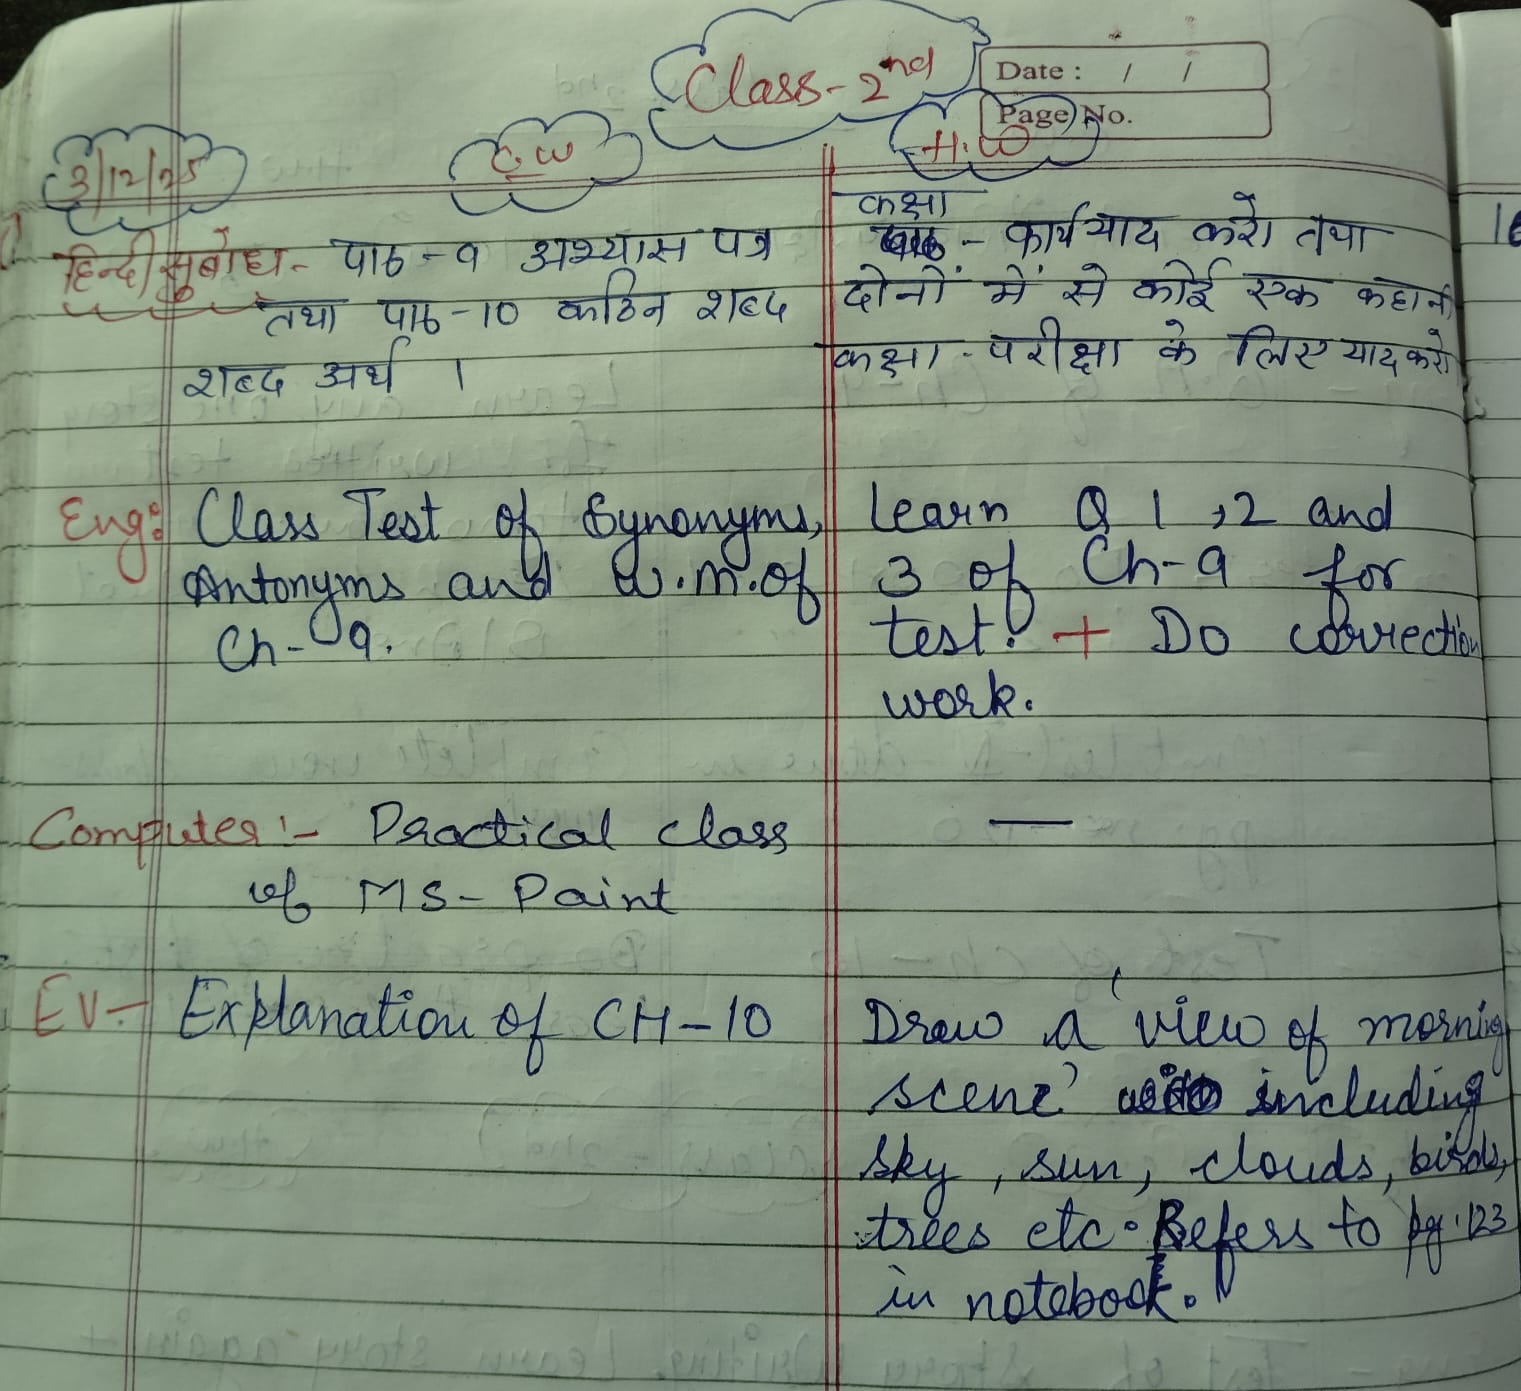 Class-2nd
Date : / /
Page No.
3/12/25
C.W
H.W
हिन्दी सुबोध- पाठ-९ अभ्यास पत्र
तथा पाठ-10 कठिन शब्द
शब्द अर्थ ।
कक्षा
- कार्य याद करो तथा
दोनों में से कोई एक कहानी
कक्षा-परीक्षा के लिए याद करो
Eng: Class Test of Synonyms,
Antonyms and W.M. of
Ch-9.
Learn Q 1,2 and
3 of Ch-9 for
test. + Do correction
work.
Computer :- Practical class
of MS-Paint
—
EV- Explanation of CH-10
Draw a 'view of morning
scene' including
sky, sun, clouds, birds,
trees etc. Refers to pg. 123
in notebook.